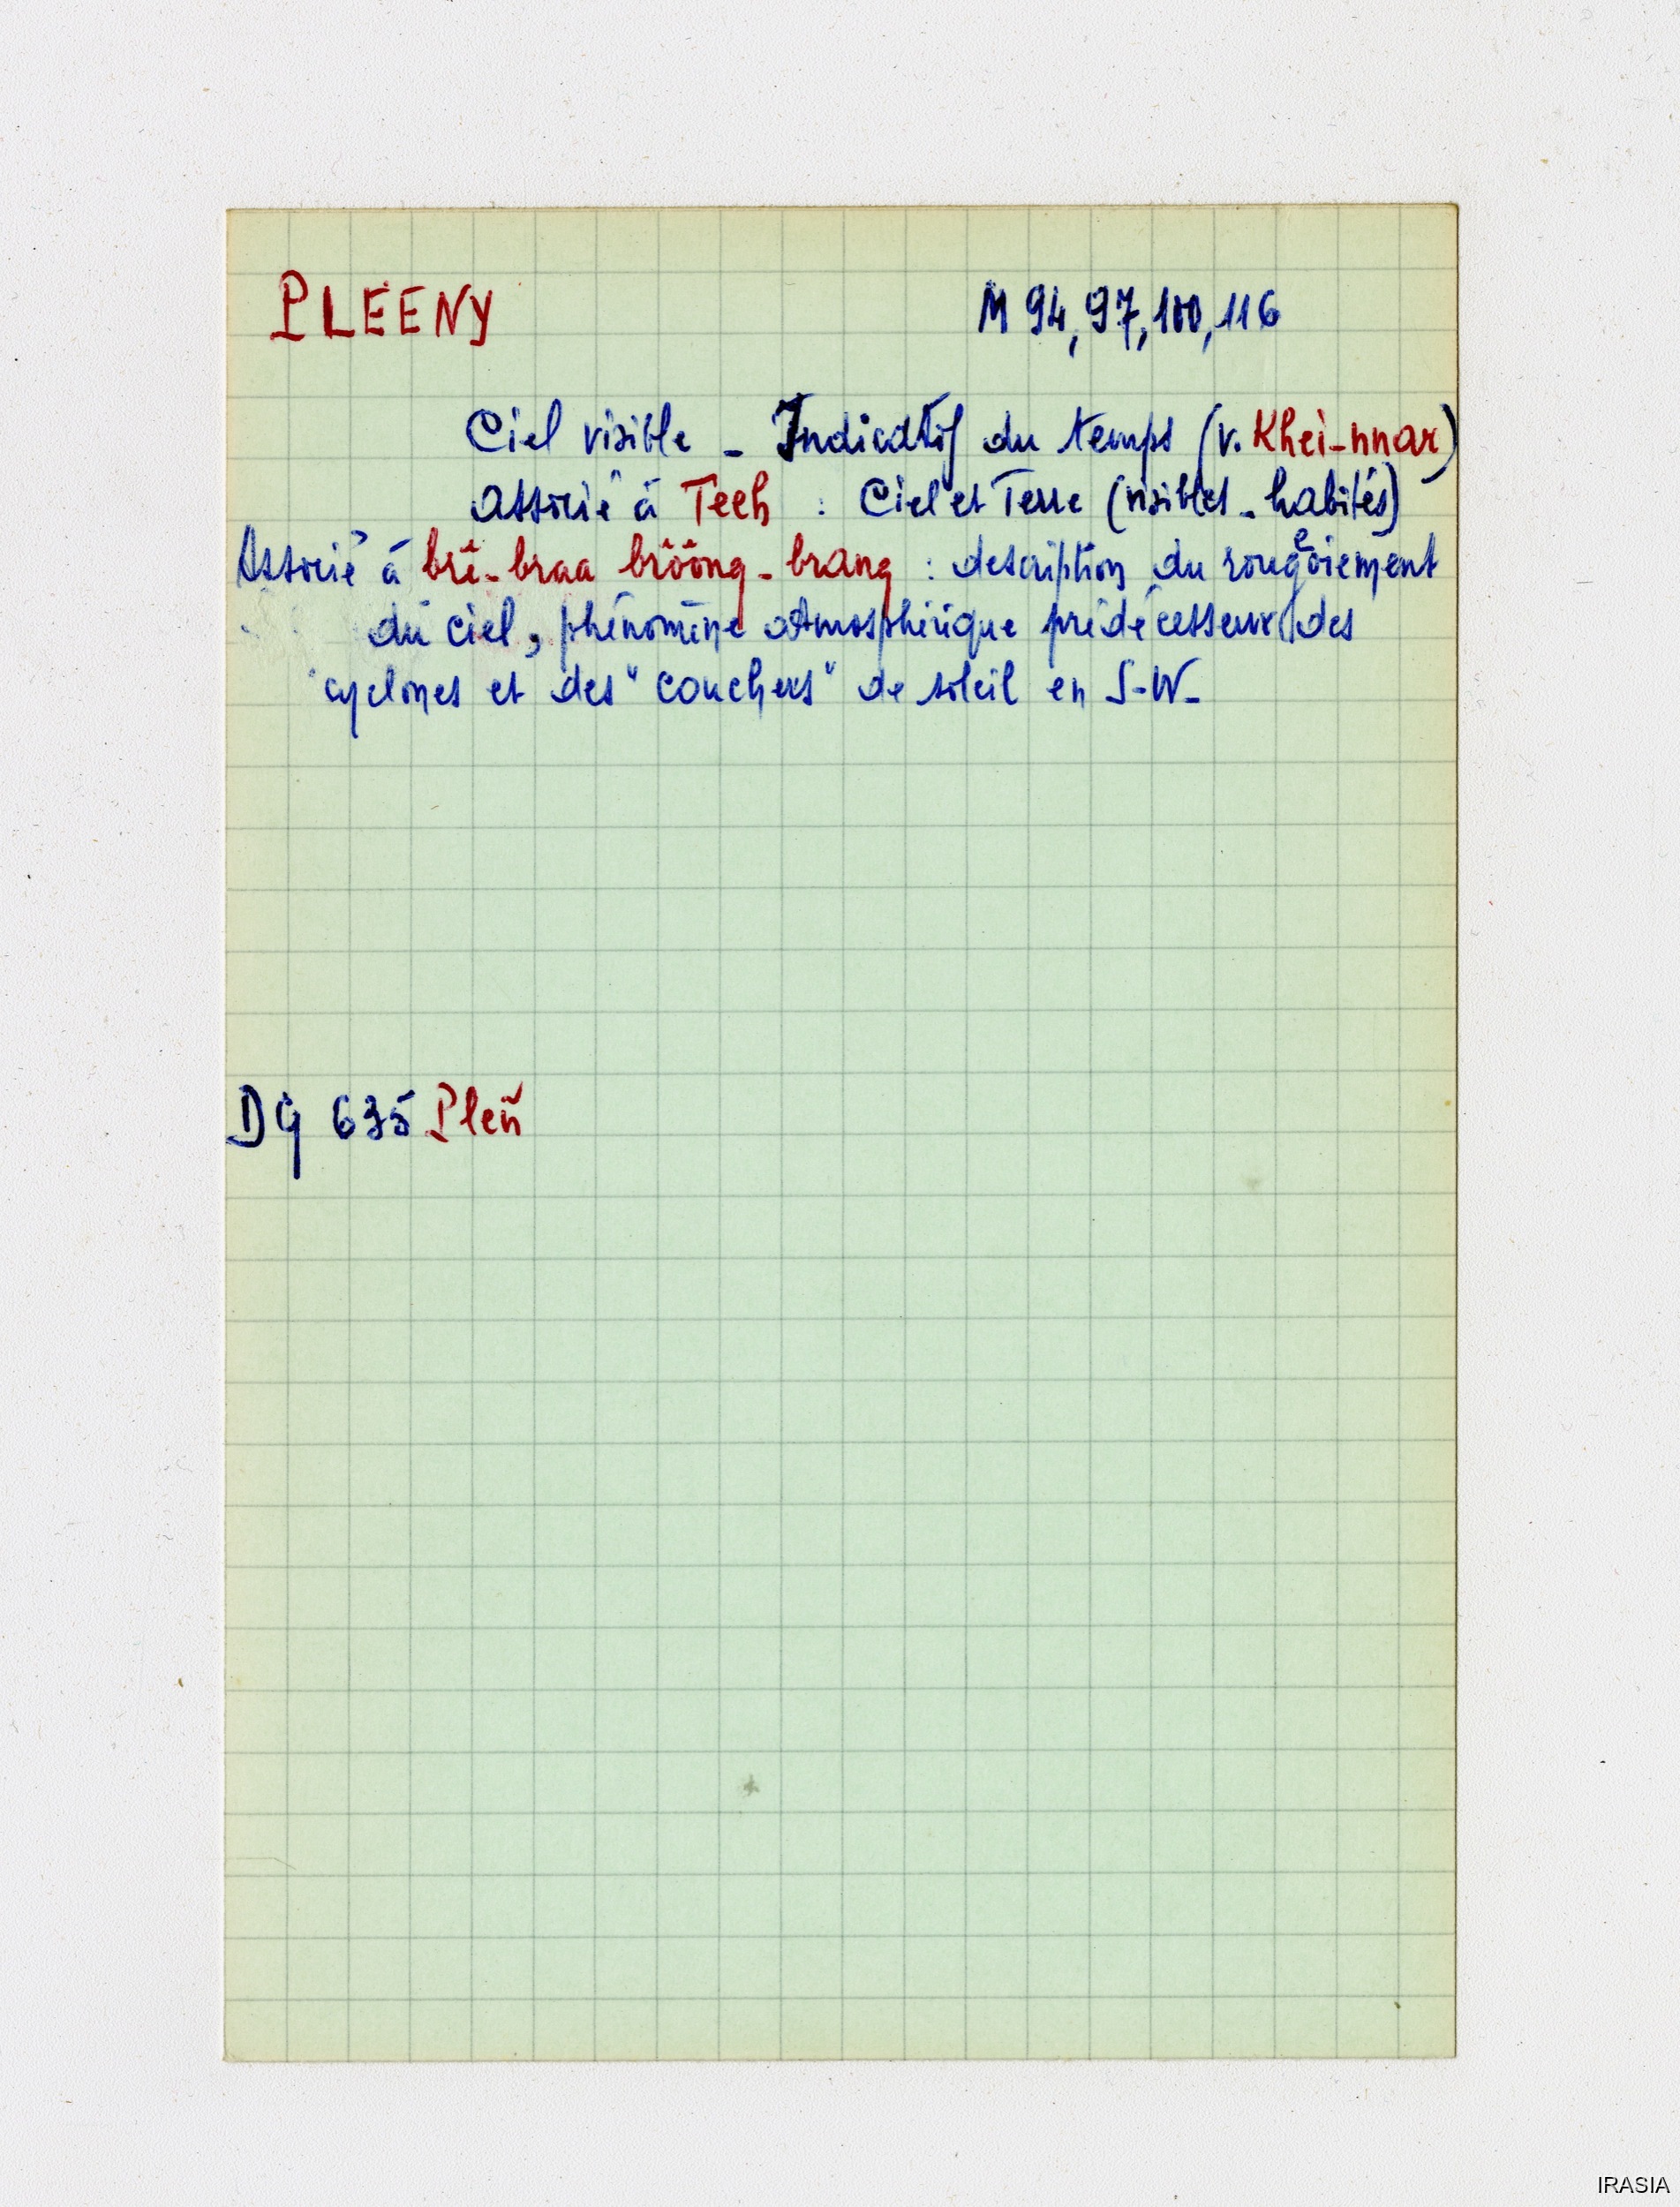 PLEENY M 94, 97, 100, 116
Ciel visible - Indicatif du temps (v. Khei-nnar)
Associé à Teeh : Ciel et Terre (visibles - habités)
Associé à brê-braa brôông-brang : description du rougeoiement
du ciel, phénomène atmosphérique prédécesseur des
cyclones et des "couchers" de soleil en S-W-
DG 635 Pleñ
IRASIA